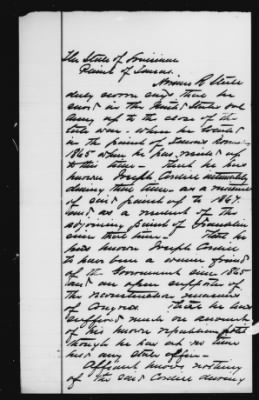 The State of Louisiana
Parish of Tensas
Norman R Steele
duly sworn says that he
served in the United States
army up to the close of the
late war – when he located
in the parish of Tensas
1865 where he has resided up
to this time – That he has
known Joseph Cordill intimately
during that time – as a resident
of said parish up to 1867
and as a resident of the
adjoining parish of Franklin
since that time – that he
has known Joseph Cordill
to have been a warm friend
of the Government since 1865
and an open supporter of
the reconstruction measures
of Congress – that he has
suffered much on account
of his known republican
though he has at no time
held any state office –
Affiant knows nothing
of the said Cordill during